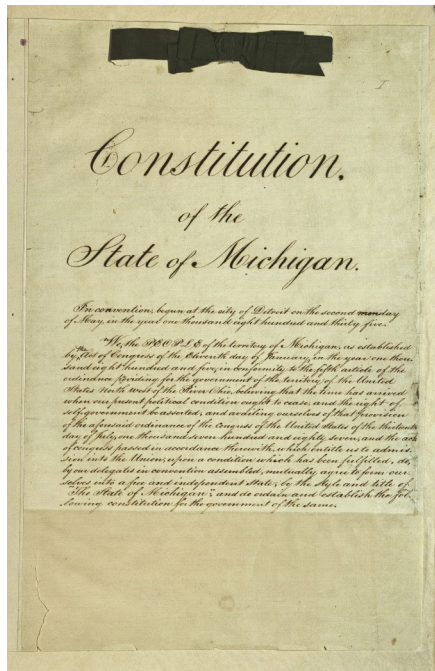 1
Constitution.
of the
State of Michigan.
In convention, begun at the city of Detroit on the second monday
of May, in the year one thousand eight hundred and thirty five.
We, the PEOPLE of the territory of Michigan, as established
by the Act of Congress of the Eleventh day of January, in the year one thou-
sand eight hundred and five, in conformity to the fifth article of the
ordinance providing for the government of the territory of the United
States North west of the River Ohio, believing that the time has arrived
when our present political condition ought to cease, and the right of
self-government be asserted; and availing ourselves of that provision
of the aforesaid ordinance of the Congress of the United States of the thirteenth
day of July, one thousand seven hundred and eighty seven, and the acts
of congress passed in accordance therewith, which entitle us to admis-
sion into the Union, upon a condition which has been fulfilled, do,
by our delegates in convention assembled, mutually agree to form our-
selves into a free and independent state, by the style and title of
"The State of Michigan"; and do ordain and establish the fol-
lowing constitution for the government of the same.